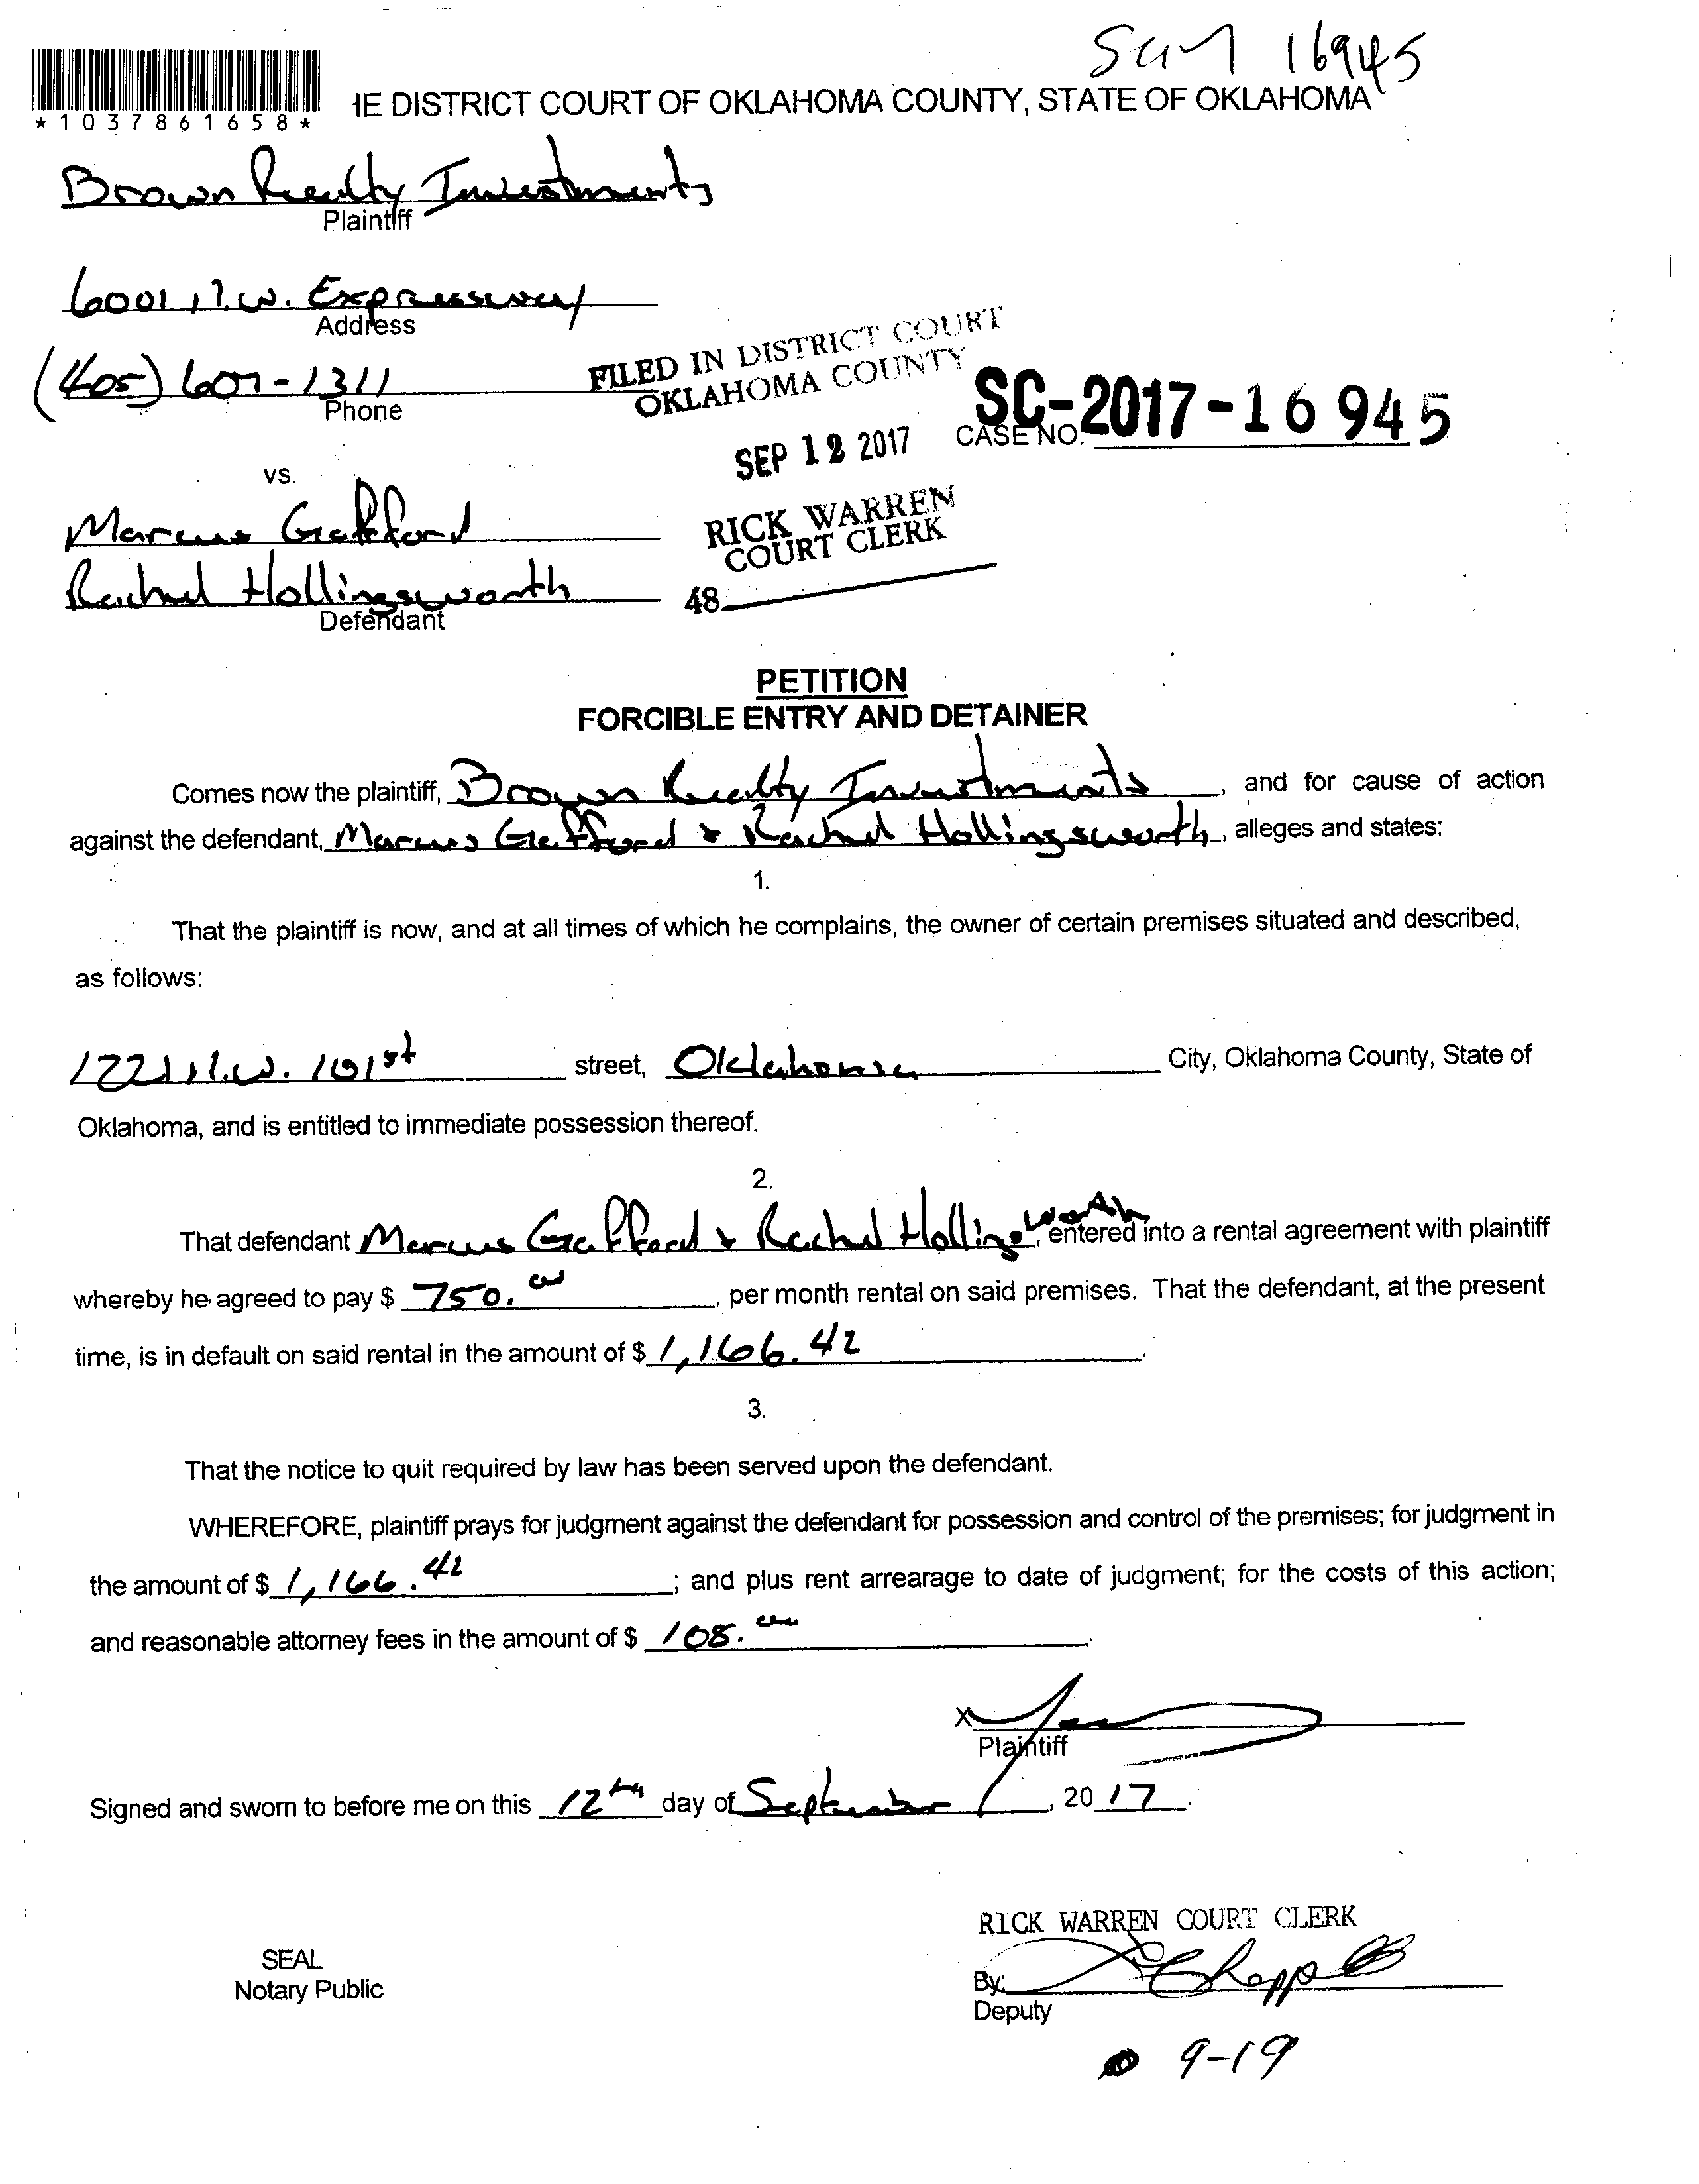 16945
*1037861658*
IE DISTRICT COURT OF OKLAHOMA COUNTY, STATE OF OKLAHOMA
Brown Realty Investments
Plaintiff
6001 N.W. Expressway
Address
(405) 607-1311
Phone
FILED IN DISTRICT COURT
OKLAHOMA COUNTY
SEP 12 2017
RICK WARREN
COURT CLERK
48
SC-2017-16945
CASE NO.
vs.
Marcus Gafford
Rachel Hollingsworth
Defendant
PETITION
FORCIBLE ENTRY AND DETAINER
Comes now the plaintiff, Brown Realty Investments, and for cause of action
against the defendant, Marcus Gafford & Rachel Hollingsworth, alleges and states:
1.
That the plaintiff is now, and at all times of which he complains, the owner of certain premises situated and described,
as follows:
1221 N.W. 101st street, Oklahoma City, Oklahoma County, State of
Oklahoma, and is entitled to immediate possession thereof.
2.
That defendant Marcus Gafford & Rachel Hollingsworth, entered into a rental agreement with plaintiff
whereby he agreed to pay $ 750.00, per month rental on said premises. That the defendant, at the present
time, is in default on said rental in the amount of $ 1,166.42.
3.
That the notice to quit required by law has been served upon the defendant.
WHEREFORE, plaintiff prays for judgment against the defendant for possession and control of the premises; for judgment in
the amount of $ 1,166.42; and plus rent arrearage to date of judgment; for the costs of this action;
and reasonable attorney fees in the amount of $ 108.00.
X
Plaintiff
Signed and sworn to before me on this 12th day of September, 2017.
RICK WARREN COURT CLERK
SEAL
Notary Public
By:
Deputy
9-19